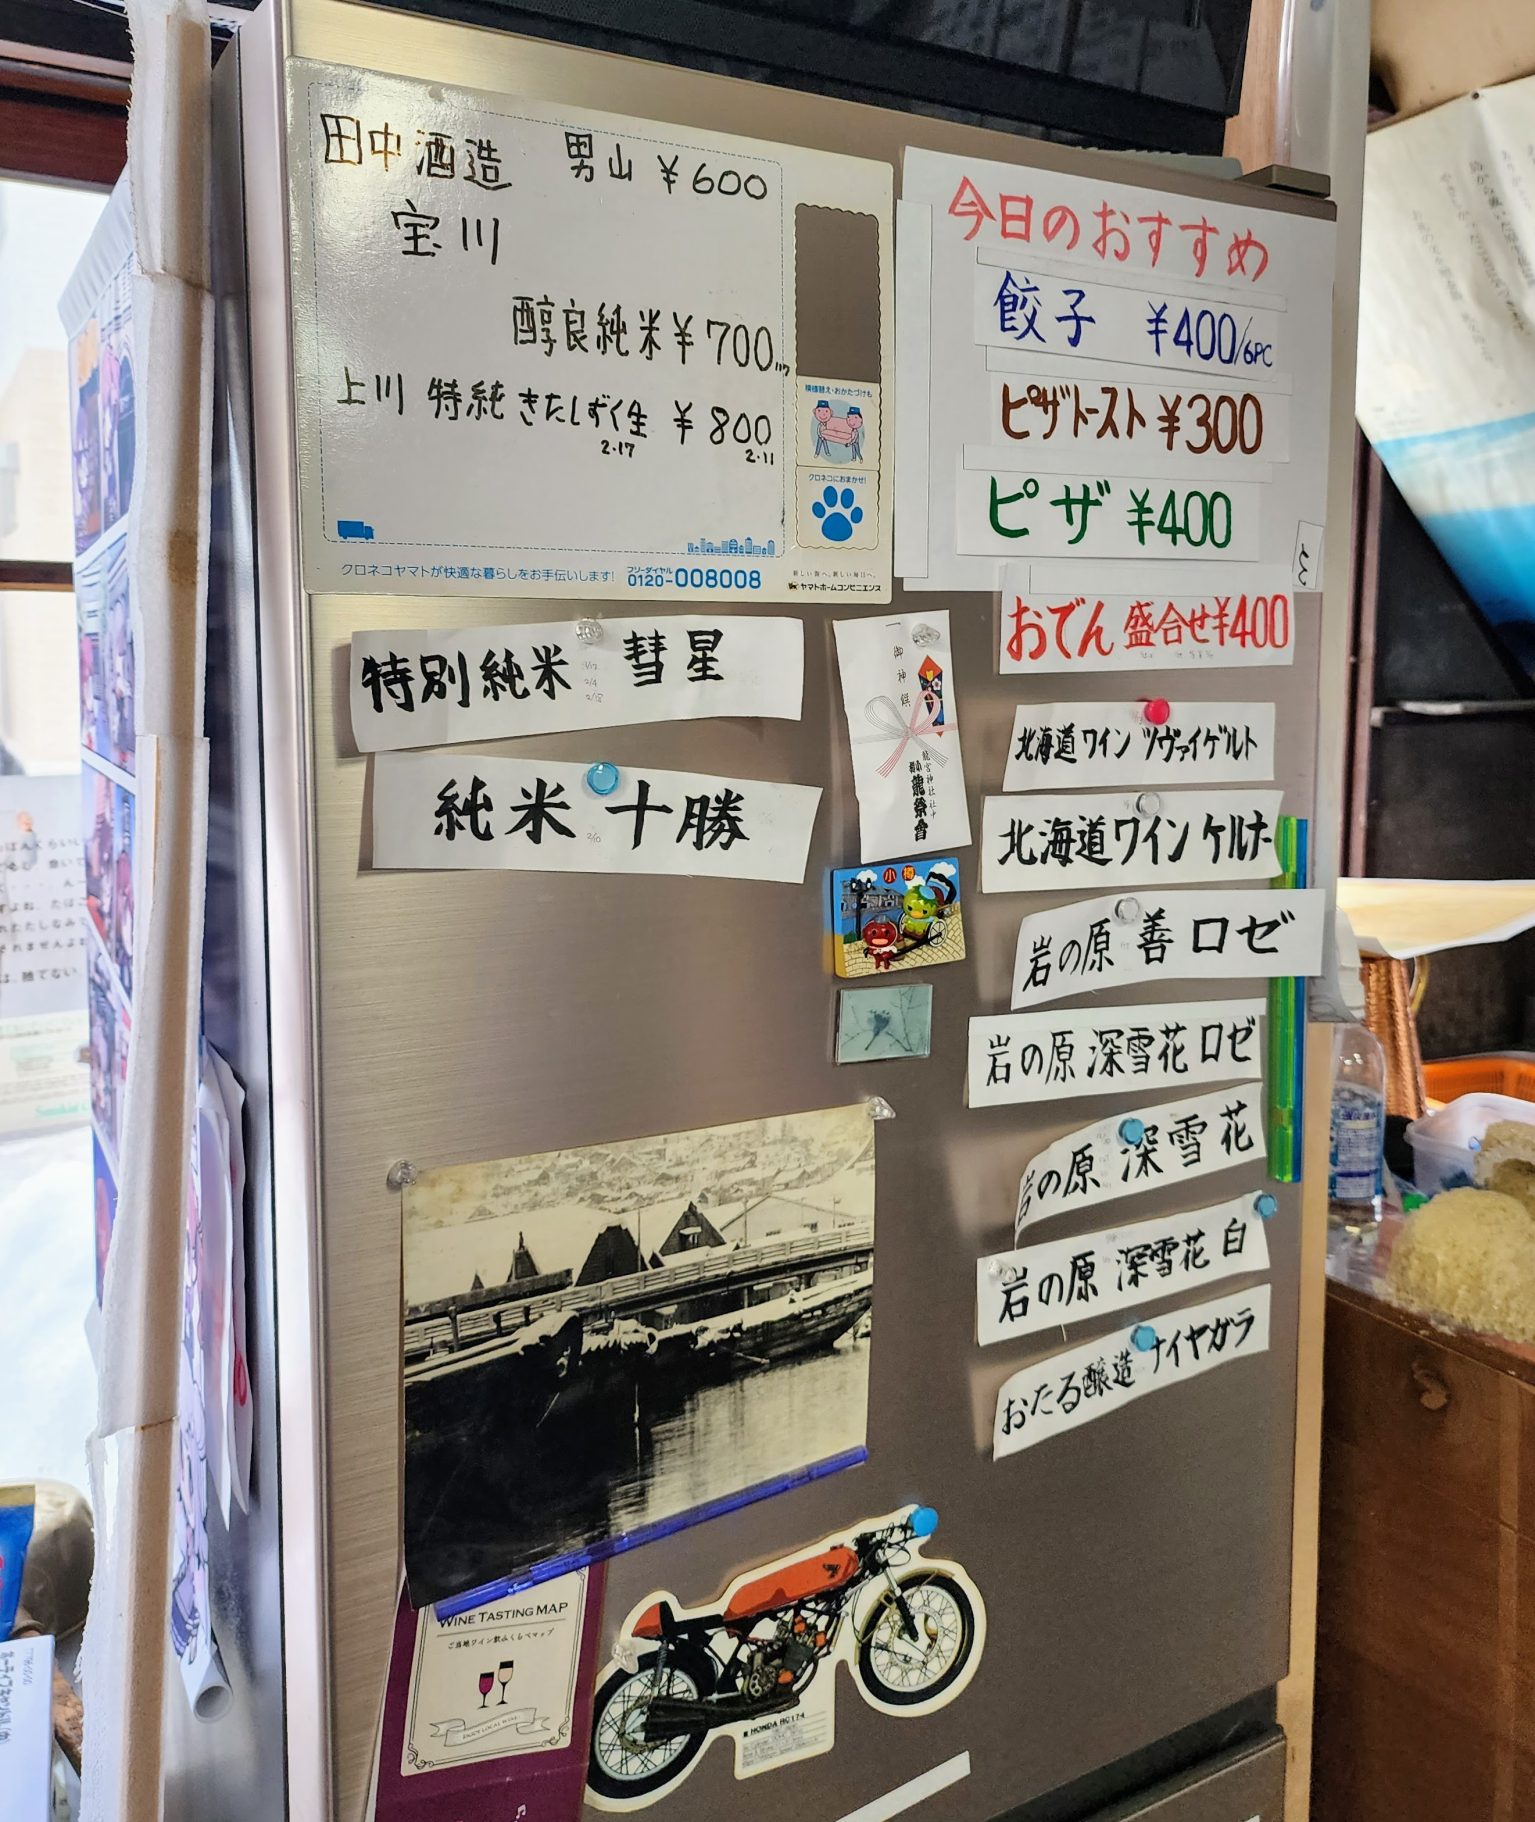 田中酒造 男山 ¥600
宝川
醇良純米 ¥700
上川 特純 きたしずく生 ¥800
2.17 2.11
模様替え・おかたづけも
クロネコにおまかせ!
クロネコヤマトが快適な暮らしをお手伝いします! フリーダイヤル 0120-008008
新しい街へ、新しい毎日へ。
ヤマトホームコンビニエンス
今日のおすすめ
餃子 ¥400/6PC
ピザトースト ¥300
ピザ ¥400
おでん 盛合せ¥400
特別純米 彗星
純米 十勝
御神饌
龍宮神社社中
龍祭會
小樽
北海道ワイン ツヴァイゲルト
北海道ワイン ケルナー
岩の原 善 ロゼ
岩の原 深雪花 ロゼ
岩の原 深雪花
岩の原 深雪花 白
おたる醸造 ナイヤガラ
WINE TASTING MAP
ご当地ワイン飲みくらべマップ
ENJOY LOCAL WINE
HONDA RC174